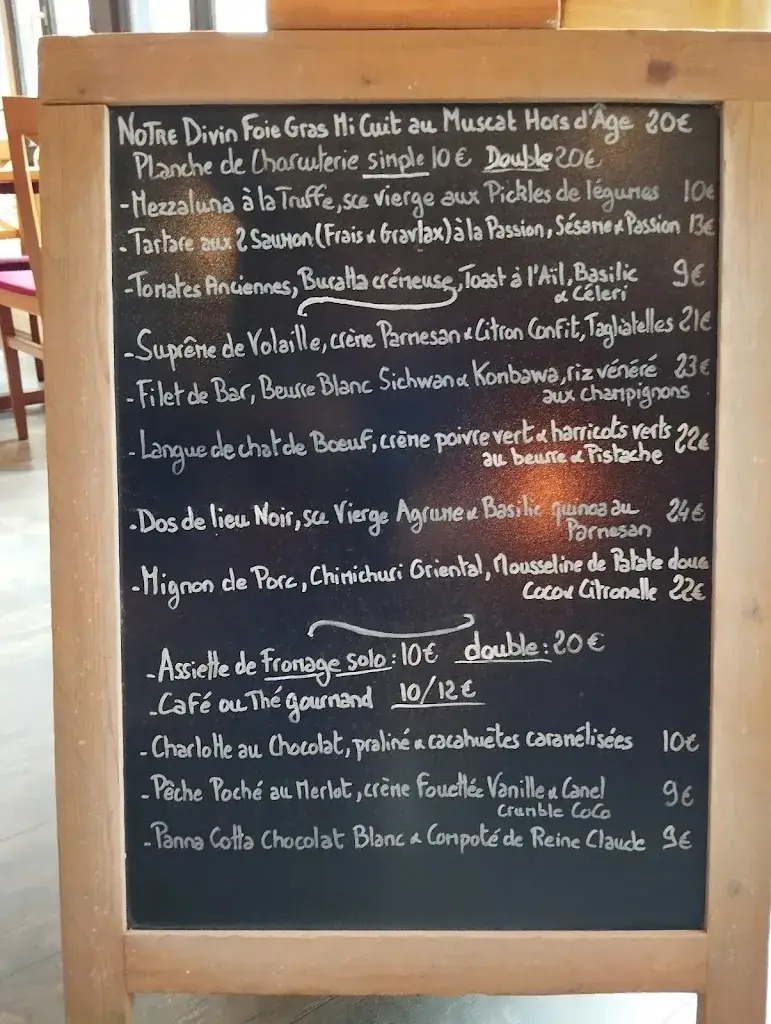 NOTRE Divin Foie Gras Mi Cuit au Muscat Hors d'Âge 20€
Planche de Charcuterie simple 10€ Double 20€
- Mezzaluna à la Truffe, sce vierge aux Pickles de légumes 10€
- Tartare aux 2 Saumon (Frais & Gravlax) à la Passion, Sésame & Passion 13€
- Tomates Anciennes, Buratta crémeuse, Toast à l'Ail, Basilic 9€
& Céleri
- Suprême de Volaille, crème Parmesan & Citron Confit, Tagliatelles 21€
- Filet de Bar, Beurre Blanc Sichwan & Konbawa, riz vénéré 23€
aux champignons
- Langue de chat de Boeuf, crème poivre vert & harricots verts 22€
au beurre & Pistache
- Dos de lieu Noir, sce Vierge Agrume & Basilic quinoa au 24€
Parmesan
- Mignon de Porc, Chimichuri Oriental, Mousseline de Patate douce
Coco & Citronelle 22€
- Assiette de Fromage solo : 10€ double : 20€
- Café ou Thé gourmand 10/12€
- Charlotte au Chocolat, praliné & cacahuètes caramélisées 10€
- Pêche Poché au Merlot, crème Fouettée Vanille & Canel 9€
Crumble CoCo
- Panna Cotta Chocolat Blanc & Compoté de Reine Claude 9€